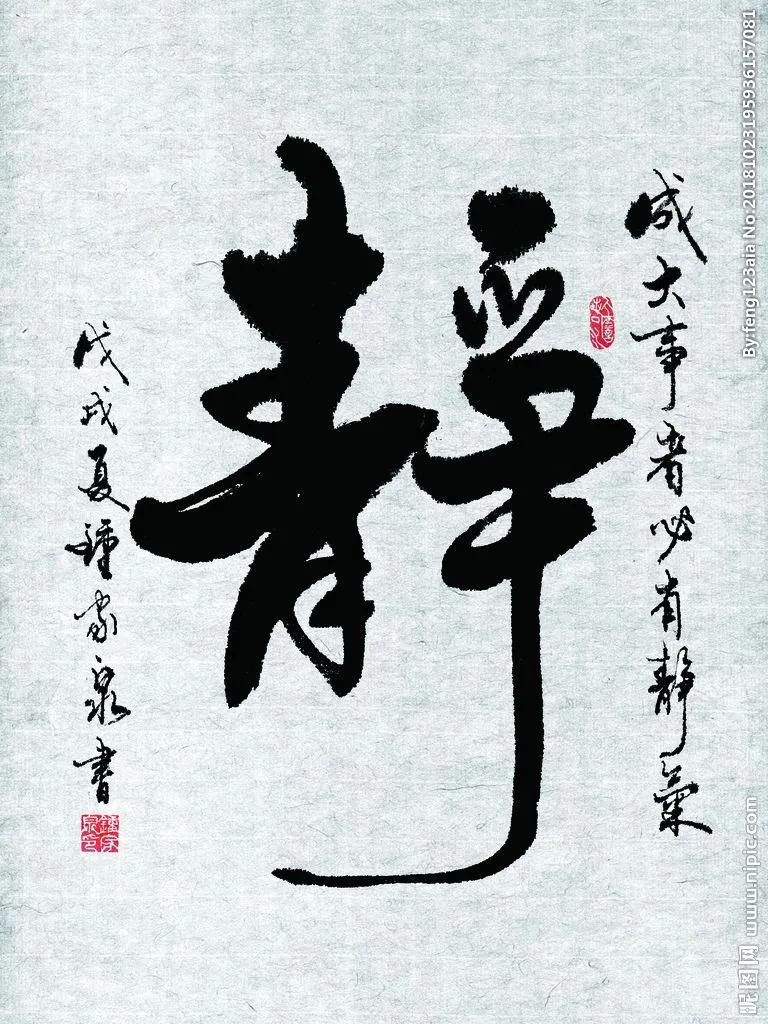 成大事者必有靜氣
靜
戊戌夏鍾家泉書
鍾家泉印
By:feng123aia No.20181023195936157081
昵图网 www.nipic.com